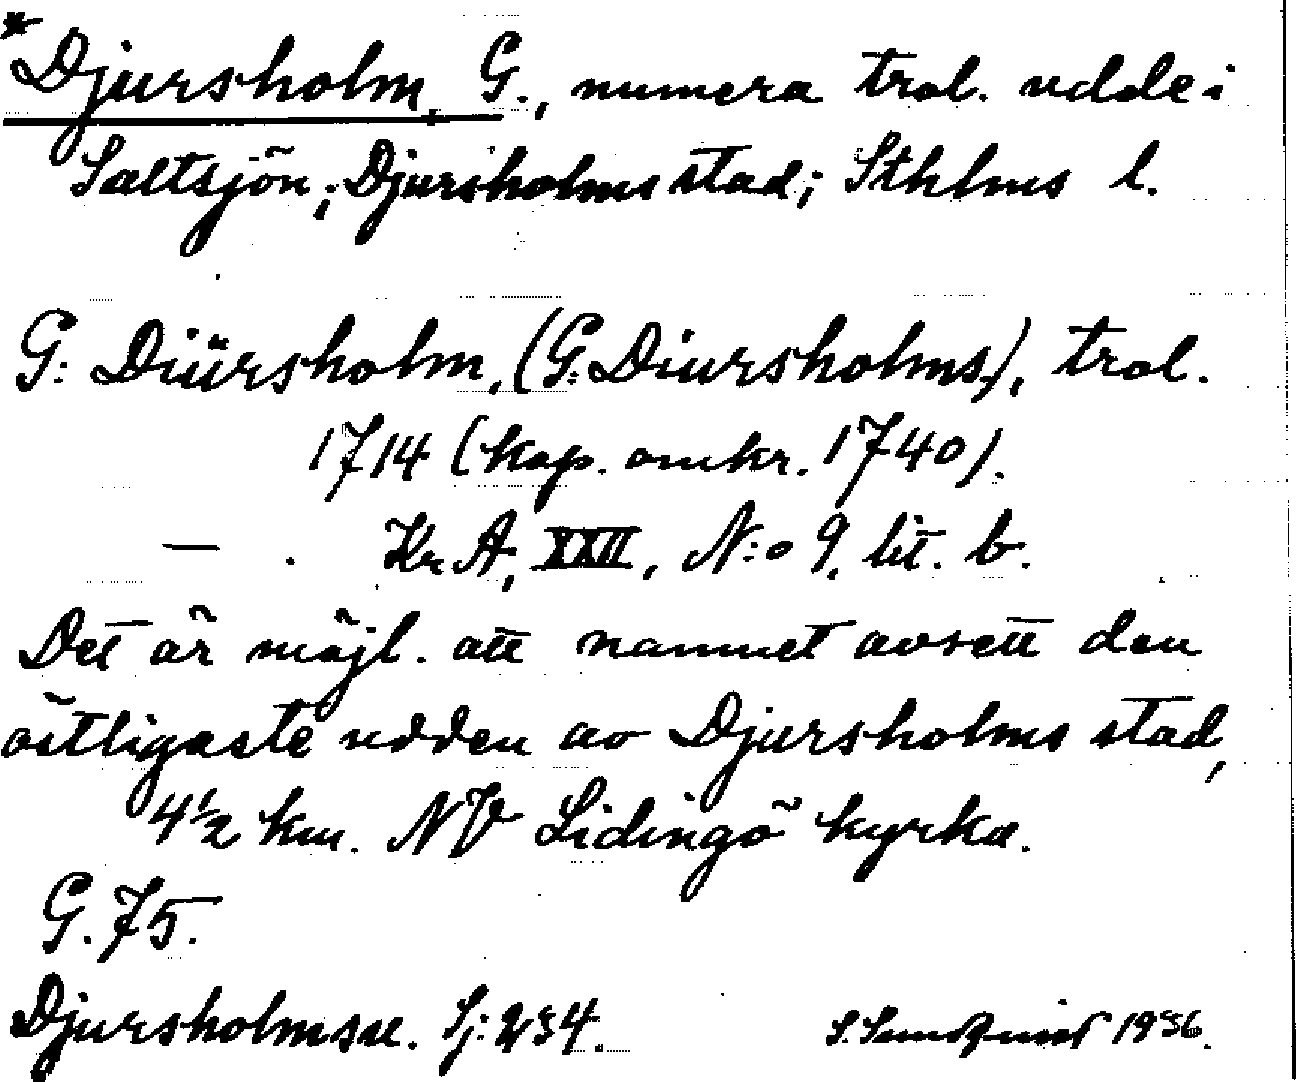 *Djursholm, G., numera trol. udde i
Saltsjön; Djursholms stad; Sthlms l.
G: Diürsholm, (G: Diursholms), trol.
1714 (kop. omkr. 1740).
— . Kr. A, XXII, N:o 9, lit. b.
Det är möjl. att namnet avsett den
östligaste udden av Djursholms stad,
4½ km. NV Lidingö kyrka.
G. 75.
Djursholmsu. Sj: 234.
S. Sundquist 1936.